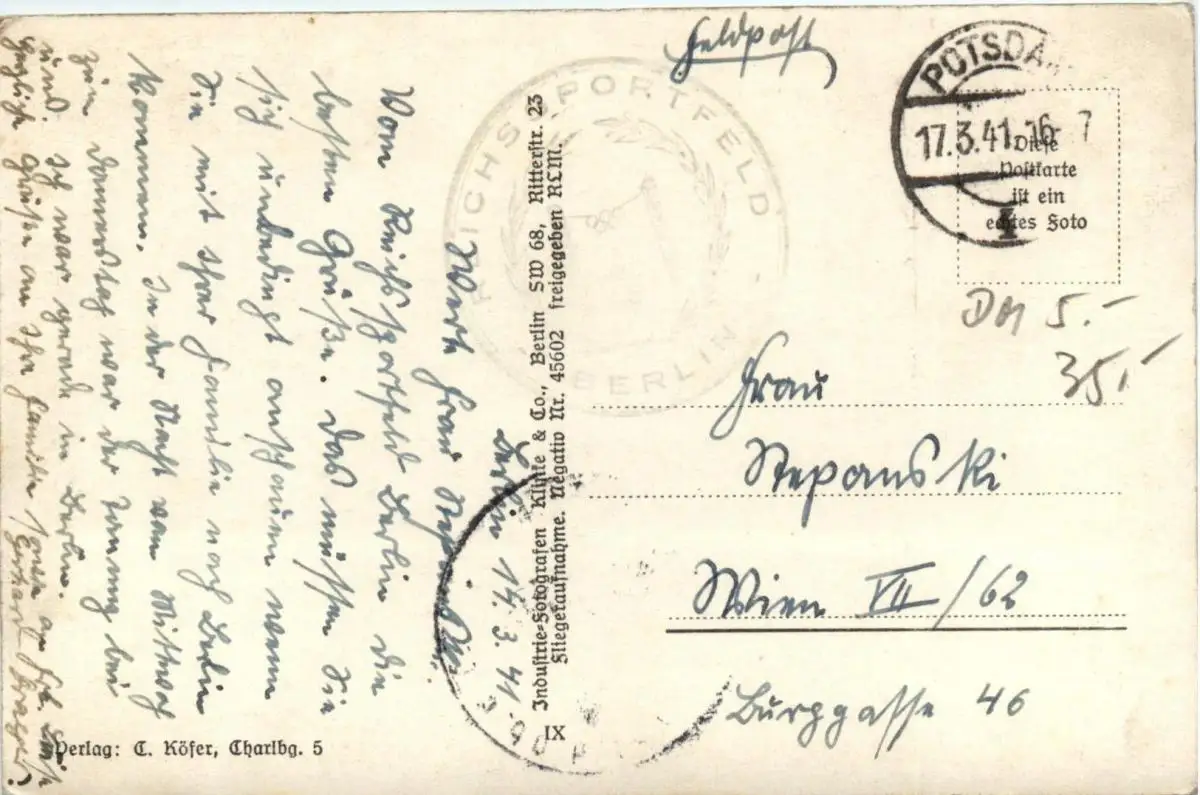 Feldpost
POTSDAM
17.3.41.16-
1
Diese
Postkarte
ist ein
echtes Foto
REICHSSPORTFELD
BERLIN
5.-
35,-
Frau
Stepanski
Wien VII/62
Burggasse 46
Industrie-Fotografen Klinke & Co., Berlin SW 68, Ritterstr. 23
Fliegeraufnahme. Negativ Nr. 45602 freigegeben RLM.
IX
Berlin 17.3.41.
Werte Frau Stepanski.
Vom Reichssportfeld Berlin die
besten Grüße. Das müssen Sie
sich unbedingt anschauen wenn
Sie mit Ihrer Familie nach Berlin
kommen. In der Nacht von Mittwoch
zum Donnerstag war der Tommy bei
uns. Ich war gerade in Berlin.
Grüße an Ihre Familie sowie an
Gerhart
Verlag: C. Köfer, Charlbg. 5